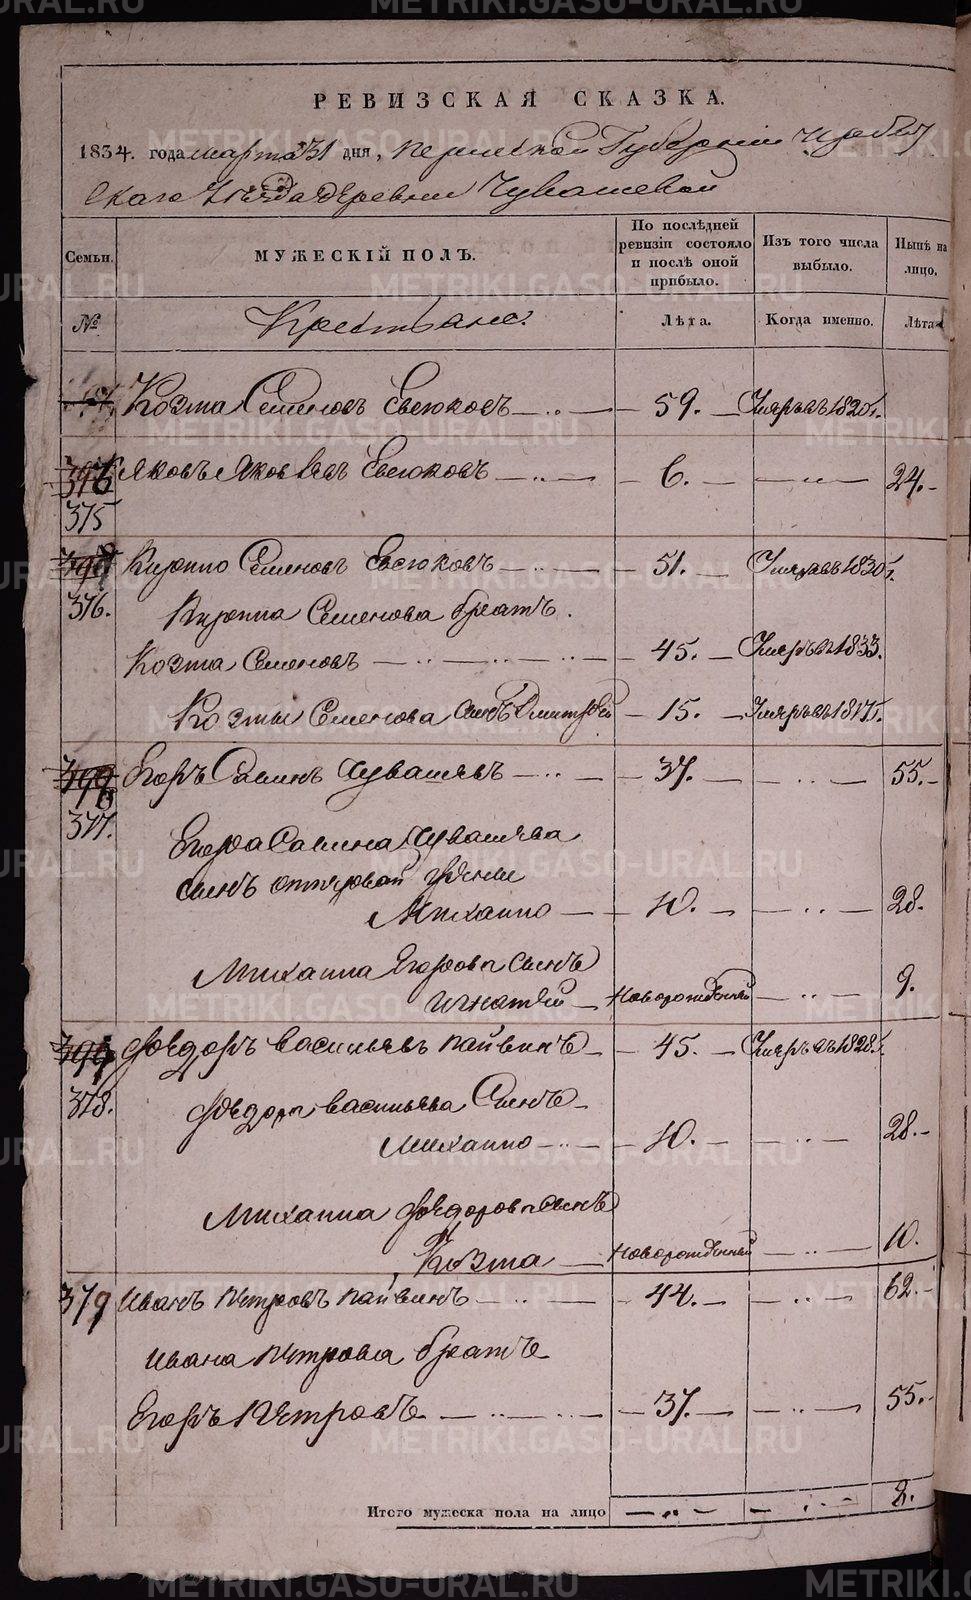 РЕВИЗСКАЯ СКАЗКА.
1834. года марта 31 дня, Пермской Губернии Ирбит
скаго Уѣзда деревни Чувашевой
Семьи.
МУЖЕСКІЙ ПОЛЪ.
По послѣдней ревизіи состояло и послѣ оной прибыло.
Изъ того числа выбыло.
Нынѣ на лицо.
№
Крестьяне.
Лѣта.
Когда именно.
Лѣта
Козма Семеновъ Евсюковъ — 59. — Умеръ въ 1820 г.
Яковъ Яковлевъ Евсюковъ — 6. — 24.
375
Кирило Семеновъ Евсюковъ — 51. — Умеръ въ 1830 г.
376.
Кирила Семенова братъ.
Козма Семеновъ — 45. — Умеръ въ 1833.
Козмы Семенова сынъ Дмитрей — 15. — Умеръ въ 1817 г.
Егоръ Савинъ Чувашевъ — 37. — 55.
377.
Егора Савина Чувашева
сынъ отъ первой жены
Михаило — 10. — 28.
Михаила Егорова сынъ
Игнатей — новорожденный — 9.
Ѳедоръ Васильевъ Пайвинъ — 45. — Умеръ въ 1828 г.
378.
Ѳедора Васильева Сынъ
Михаило — 10. — 28.
Михаила Ѳедорова сынъ
Козма — новорожденный — 10.
379 Иванъ Петровъ Пайвинъ — 44. — 62.
Ивана Петрова братъ
Егоръ Петровъ — 37. — 55.
Итого мужеска пола на лицо — 8.
METRIKI.GASO-URAL.RU